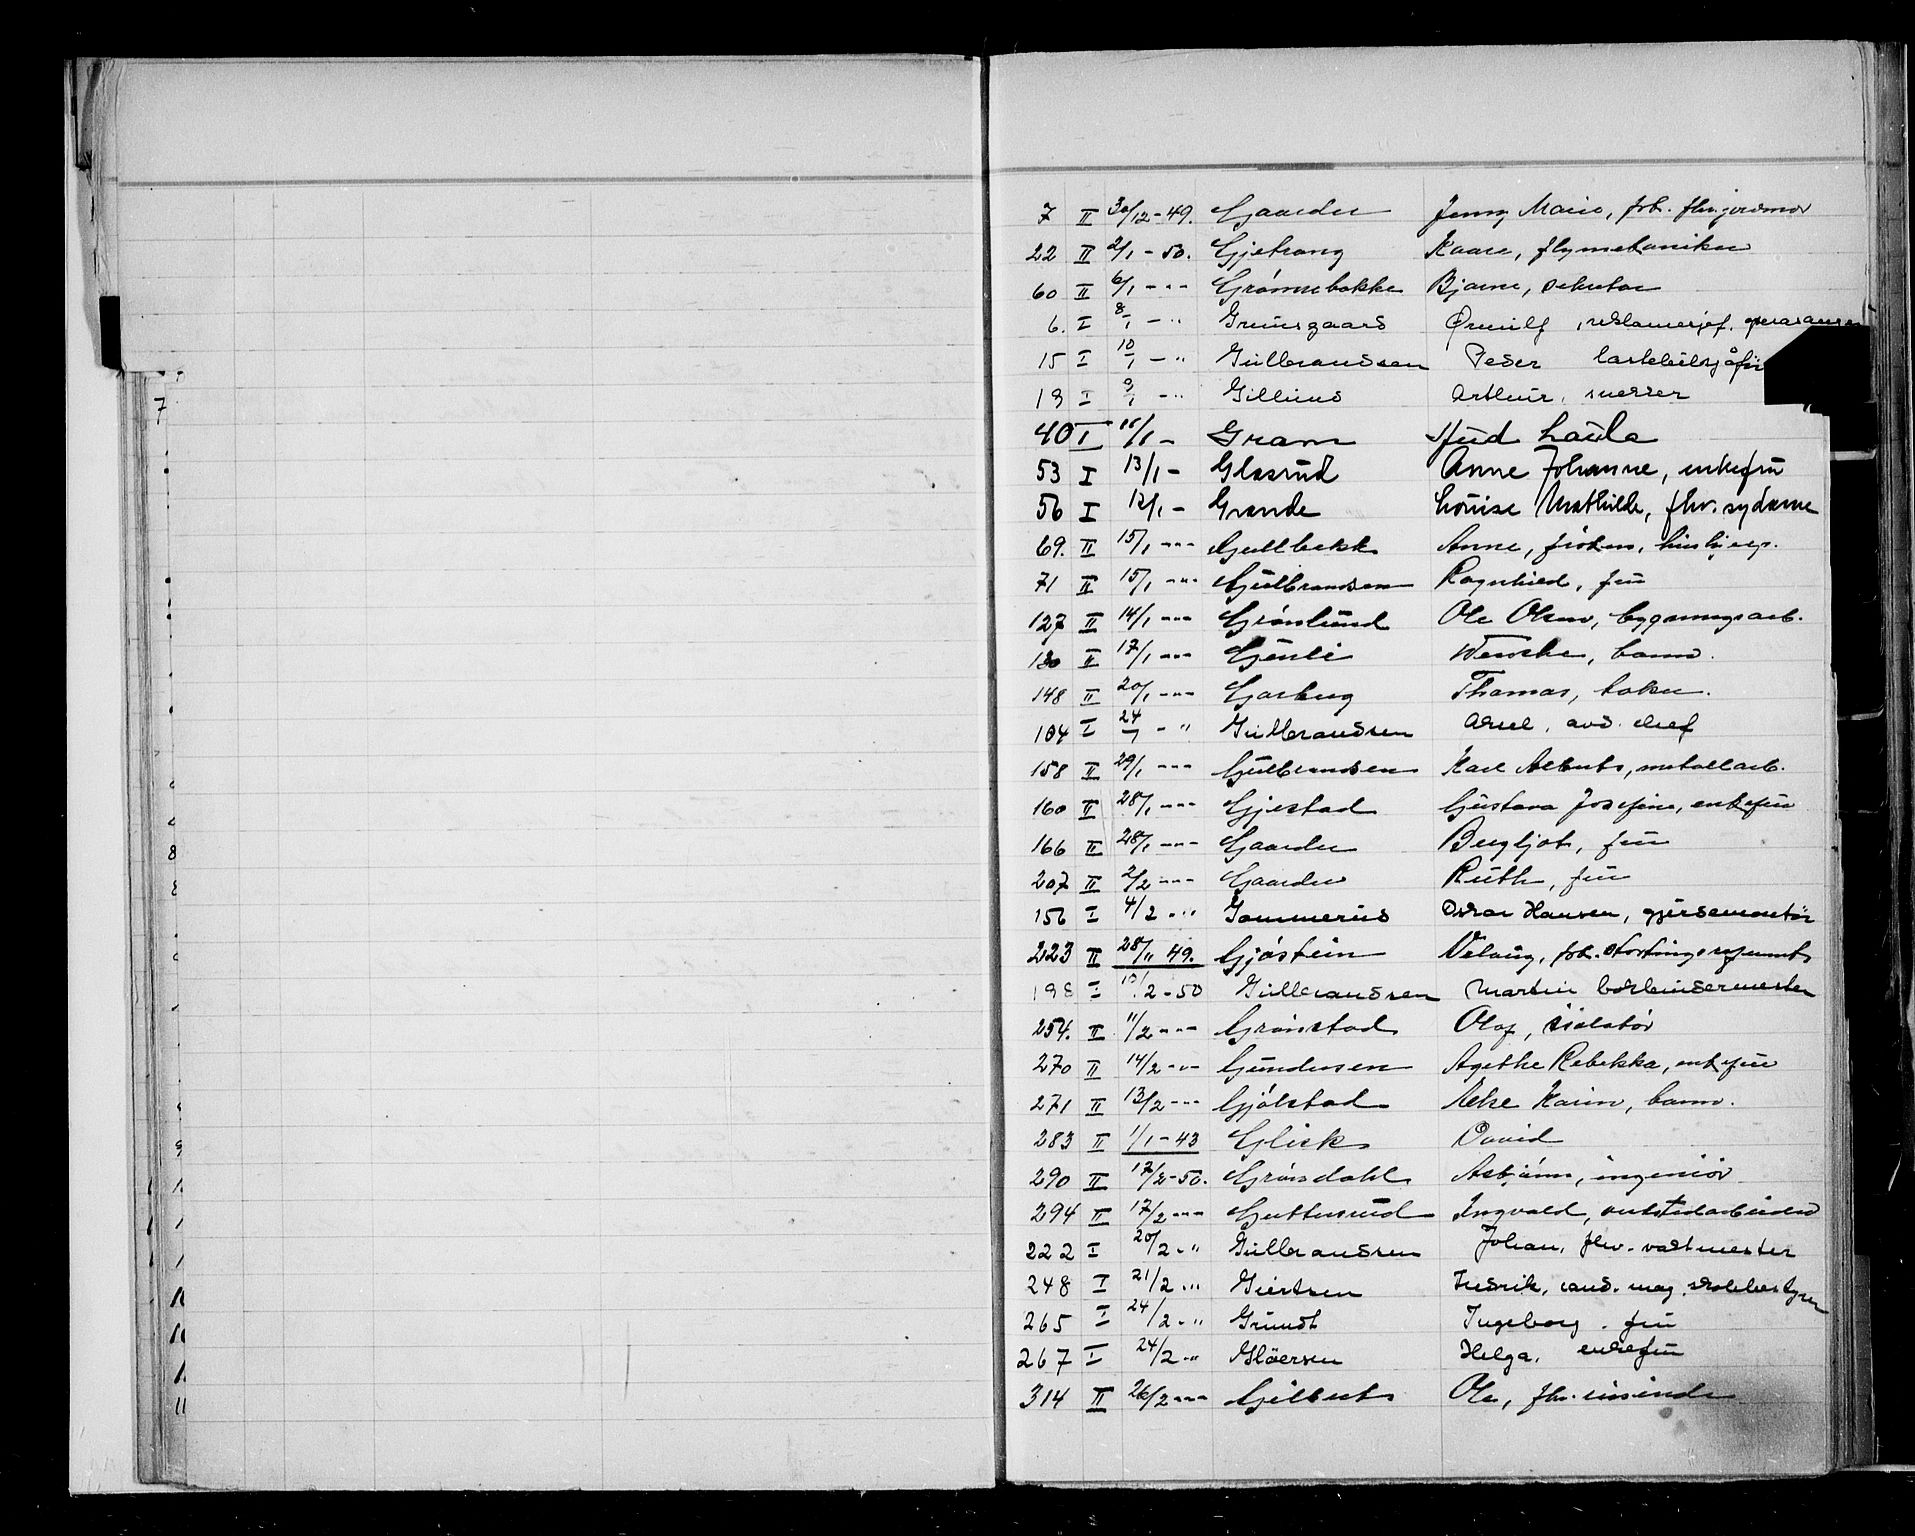 7 II 30/12-49. Gaarder Jenny Marie, frk. fhv. jordmor
22 II 2/1 - 50. Gjetrang Kaare, flymekaniker
60 II 6/1 - " - Grønnebakke Bjarne, sekretær
6. I 8/1 - " Grimsgaard Ørnulf, reklamesjef, operasanger
15 I 10/1 - " Gulbrandsen Peder lastebilsjåfør
19 I 9/1 - " Gillund Arthur, snekker
40 I 15/1 - Gram stud Laula
53 I 13/1 - Glasrud Anne Johanne, enkefru
56 I 12/1 - Grande Louise Mathilde, fhv. sydame
69. II 15/1 - " - Gullbekk Anne, frøken, hushjelp.
71 II 15/1 - " - Gulbrandsen Ragnhild, fru
127 II 14/1 - " - Grønlund Ole Olsen, bygningsarb.
130 II 17/1 - " - Gjenli Wenche, barn.
148 II 20/1 - " - Garberg Thomas, baker.
104 I 24/1 - " Gulbrandsen Aksel, avd. chef
158 II 29/1 - " - Gulbrandsen Karl Alberts, metallarb.
160 II 28/1 - " - Gjestad Gustava Josefine, enkefru
166 II 28/1 - " - Gaarder Bergljot, fru
207 II 2/2 - " - Gaarder Ruth, fru
156 I 4/2 - " Gommerud Oskar Hansen, gjerdemontør
223 II 28/11 49. Gjøstein frk.
198 I 10/2-50 Gulbrandsen Martin bokbindermester
254. II 11/2 - " - Grønstad Olaf,
270 II 14/2 - " - Gundersen Agethe Rebekka, enkefru
271 II 13/2 - " - Gjølstad Else Karin, barn.
283 II 1/1 - 43 Glick David
290 II 17/2-50. Grønsdahl Asbjørn, ingeniør
294 II 17/2 - " - Guttersrud Ingvald,
222 I 20/2 - " Gulbrandsen Johan, fhv. vaktmester
248 I 21/2 - " Giertsen Fredrik, cand. mag. skolebestyrer
265 I 24/2 - " Grundt Ingeborg, fru
267 I 24/2 - " Gløersen Helga, enkefru
314 II 26/2 - " - Gilberts Ole, fhv.